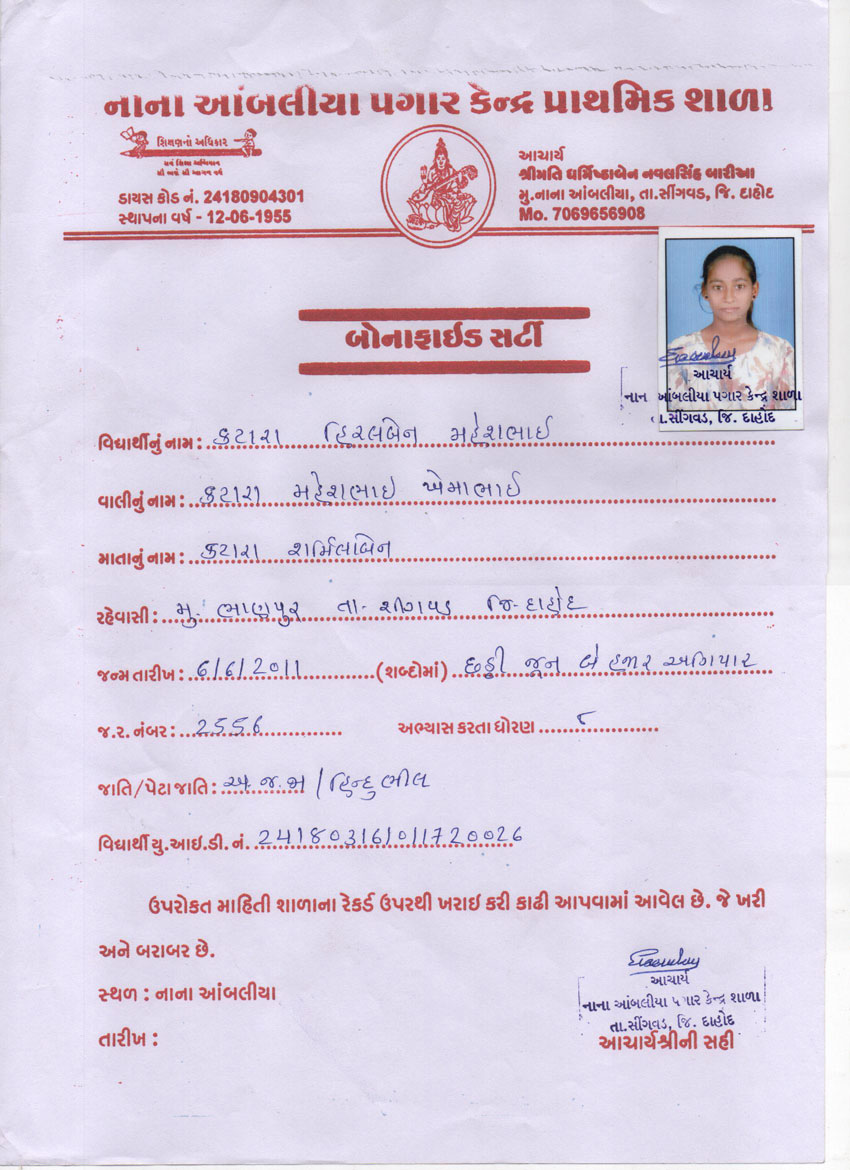 નાના આંબલીયા પગાર કેન્દ્ર પ્રાથમિક શાળા
શિક્ષણનો અધિકાર
સર્વ શિક્ષા અભિયાન
ડાયસ કોડ નં. 24180904301
સ્થાપના વર્ષ - 12-06-1955
આચાર્ય
શ્રીમતિ ધર્મિષ્ઠાબેન નવલસિંહ બારીઆ
મુ.નાના આંબલીયા, તા.સીંગવડ, જિ. દાહોદ
Mo. 7069656908
બોનાફાઇડ સર્ટી
આચાર્ય
નાન આંબલીયા પગાર કેન્દ્ર શાળા
તા.સીંગવડ, જિ. દાહોદ
વિદ્યાર્થીનું નામ : કટારા હિરલબેન મહેશભાઈ
વાલીનું નામ : કટારા મહેશભાઇ ખેમાભાઈ
માતાનું નામ : કટારા શર્મિલાબેન
રહેવાસી : મુ. ભાણપુર તા- શીંગવડ જિ- દાહોદ
જન્મ તારીખ : 6/6/2011 (શબ્દોમાં) છઠ્ઠી જૂન બે હજાર અગિયાર
જ.ર. નંબર : 2556 અભ્યાસ કરતા ધોરણ ૮
જાતિ/પેટા જાતિ : અ.જ.જા / હિન્દુ ભીલ
વિદ્યાર્થી યુ.આઇ.ડી. નં. 241803161011720026
ઉપરોકત માહિતી શાળાના રેકર્ડ ઉપરથી ખરાઇ કરી કાઢી આપવામાં આવેલ છે. જે ખરી
અને બરાબર છે.
સ્થળ : નાના આંબલીયા
તારીખ :
આચાર્ય
નાના આંબલીયા પગાર કેન્દ્ર શાળા
તા.સીંગવડ, જિ. દાહોદ
આચાર્યશ્રીની સહી